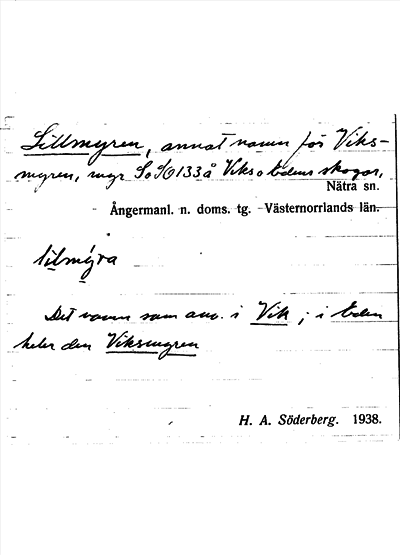 Lillmyren, annat namn för Viks-
myren, myr S o SO 133 å Viks o Edens skogar,
Nätra sn.
Ångermanl. n. doms. tg. Västernorrlands län.
lìlmýra
Det namn som anv. i Vik ; i Eden
heter den Viksmyren
H. A. Söderberg. 1938.